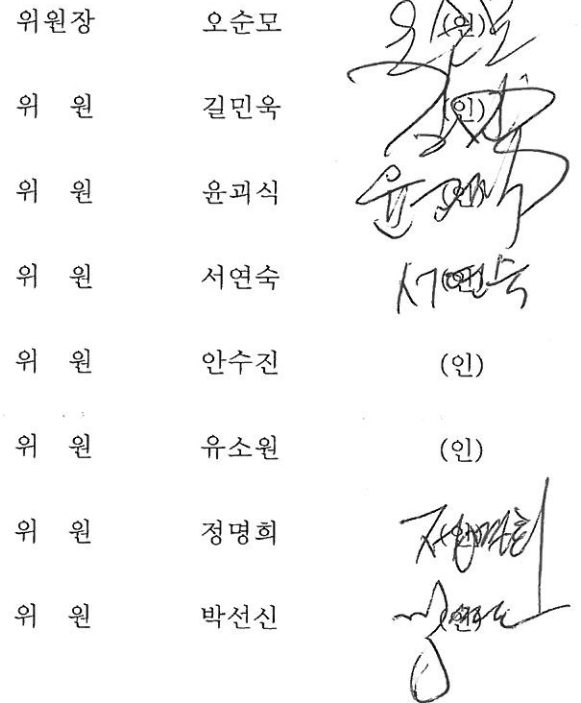 위원장 오순모 (인)
위 원 길민욱 (인)
위 원 윤괴식 (인)
위 원 서연숙 (인) 서연숙
위 원 안수진 (인)
위 원 유소원 (인)
위 원 정명희 (인) 정명희
위 원 박선신 (인)